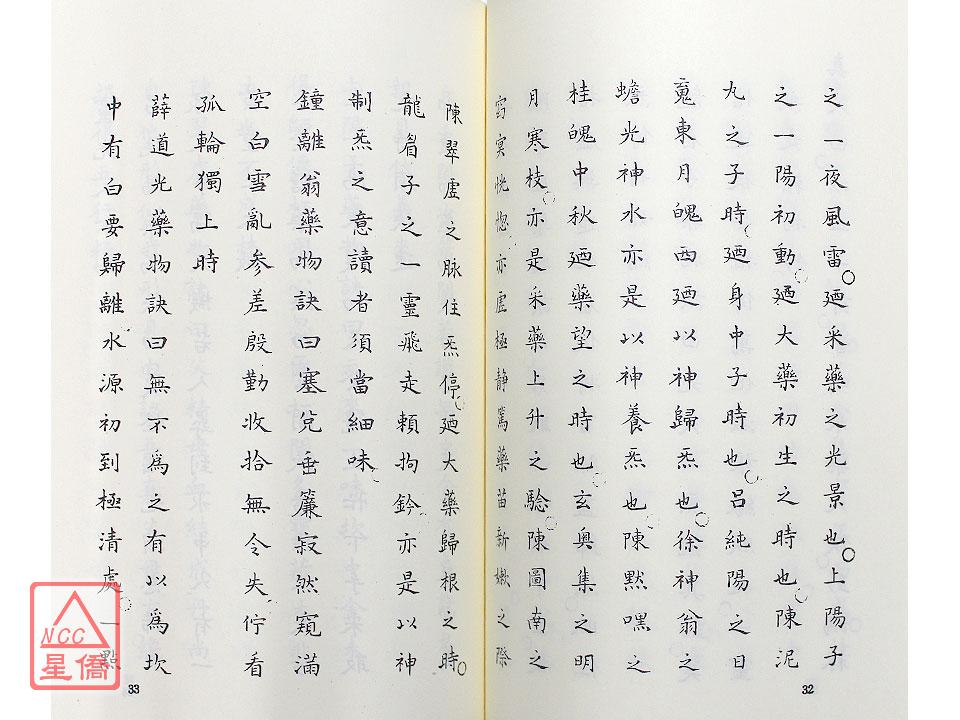 之一夜風雷廼采藥之光景也上陽子
之一陽初動廼大藥初生之時也陳泥
丸之子時廼身中子時也呂純陽之日
䰟東月魄西廼以神歸炁也徐神翁之
蟾光神水亦是以神養炁也陳默嘿之
桂魄中秋廼藥望之時也玄奥集之明
月寒枝亦是采藥上升之騐陳圖南之
窈冥恍惚亦虛極静篤藥苗新嫩之際
32
陳翠虛之脉住炁停廼大藥歸根之時
龍眉子之一靈飛走賴拘鈐亦是以神
制炁之意讀者須當細味
鐘離翁藥物訣曰塞兌垂簾寂然窺滿
空白雪亂参差殷勤收拾無令失佇看
孤輪獨上時
薛道光藥物訣曰無不為之有以為坎
中有白要歸離水源初到極清處一點
33
NCC
星僑